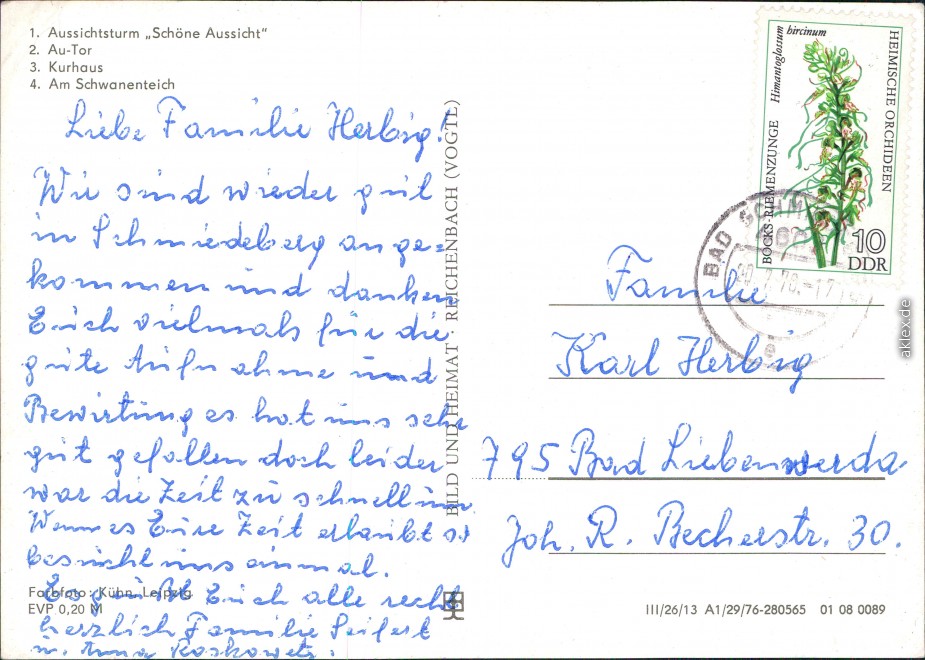 1. Aussichtsturm „Schöne Aussicht"
2. Au-Tor
3. Kurhaus
4. Am Schwanenteich
Liebe Familie Herbig!
Wir sind wieder gut
in Schmiedeberg ange=
kommen und danken
Euch vielmals für die
gute Aufnahme und
Bewirtung es hat uns sehr
gut gefallen doch leider
war die Zeit zu schnell um.
Wenn es Eure Zeit erlaubt so
besucht uns einmal.
Es grüßt Euch alle recht
herzlich Familie Seifert
u. Anna
Farbfoto: Kühn, Leipzig
EVP 0,20 M
BILD UND HEIMAT REICHENBACH (VOGTL)
HEIMISCHE ORCHIDEEN
Himantoglossum hircinum
BOCKS-RIEMENZUNGE
10
DDR
BAD SCHM
e
Familie
Karl Herbig
795 Bad Liebenwerda
Joh. R. Becherstr. 30.
III/26/13 A1/29/76-280565 01 08 0089
aklex.de